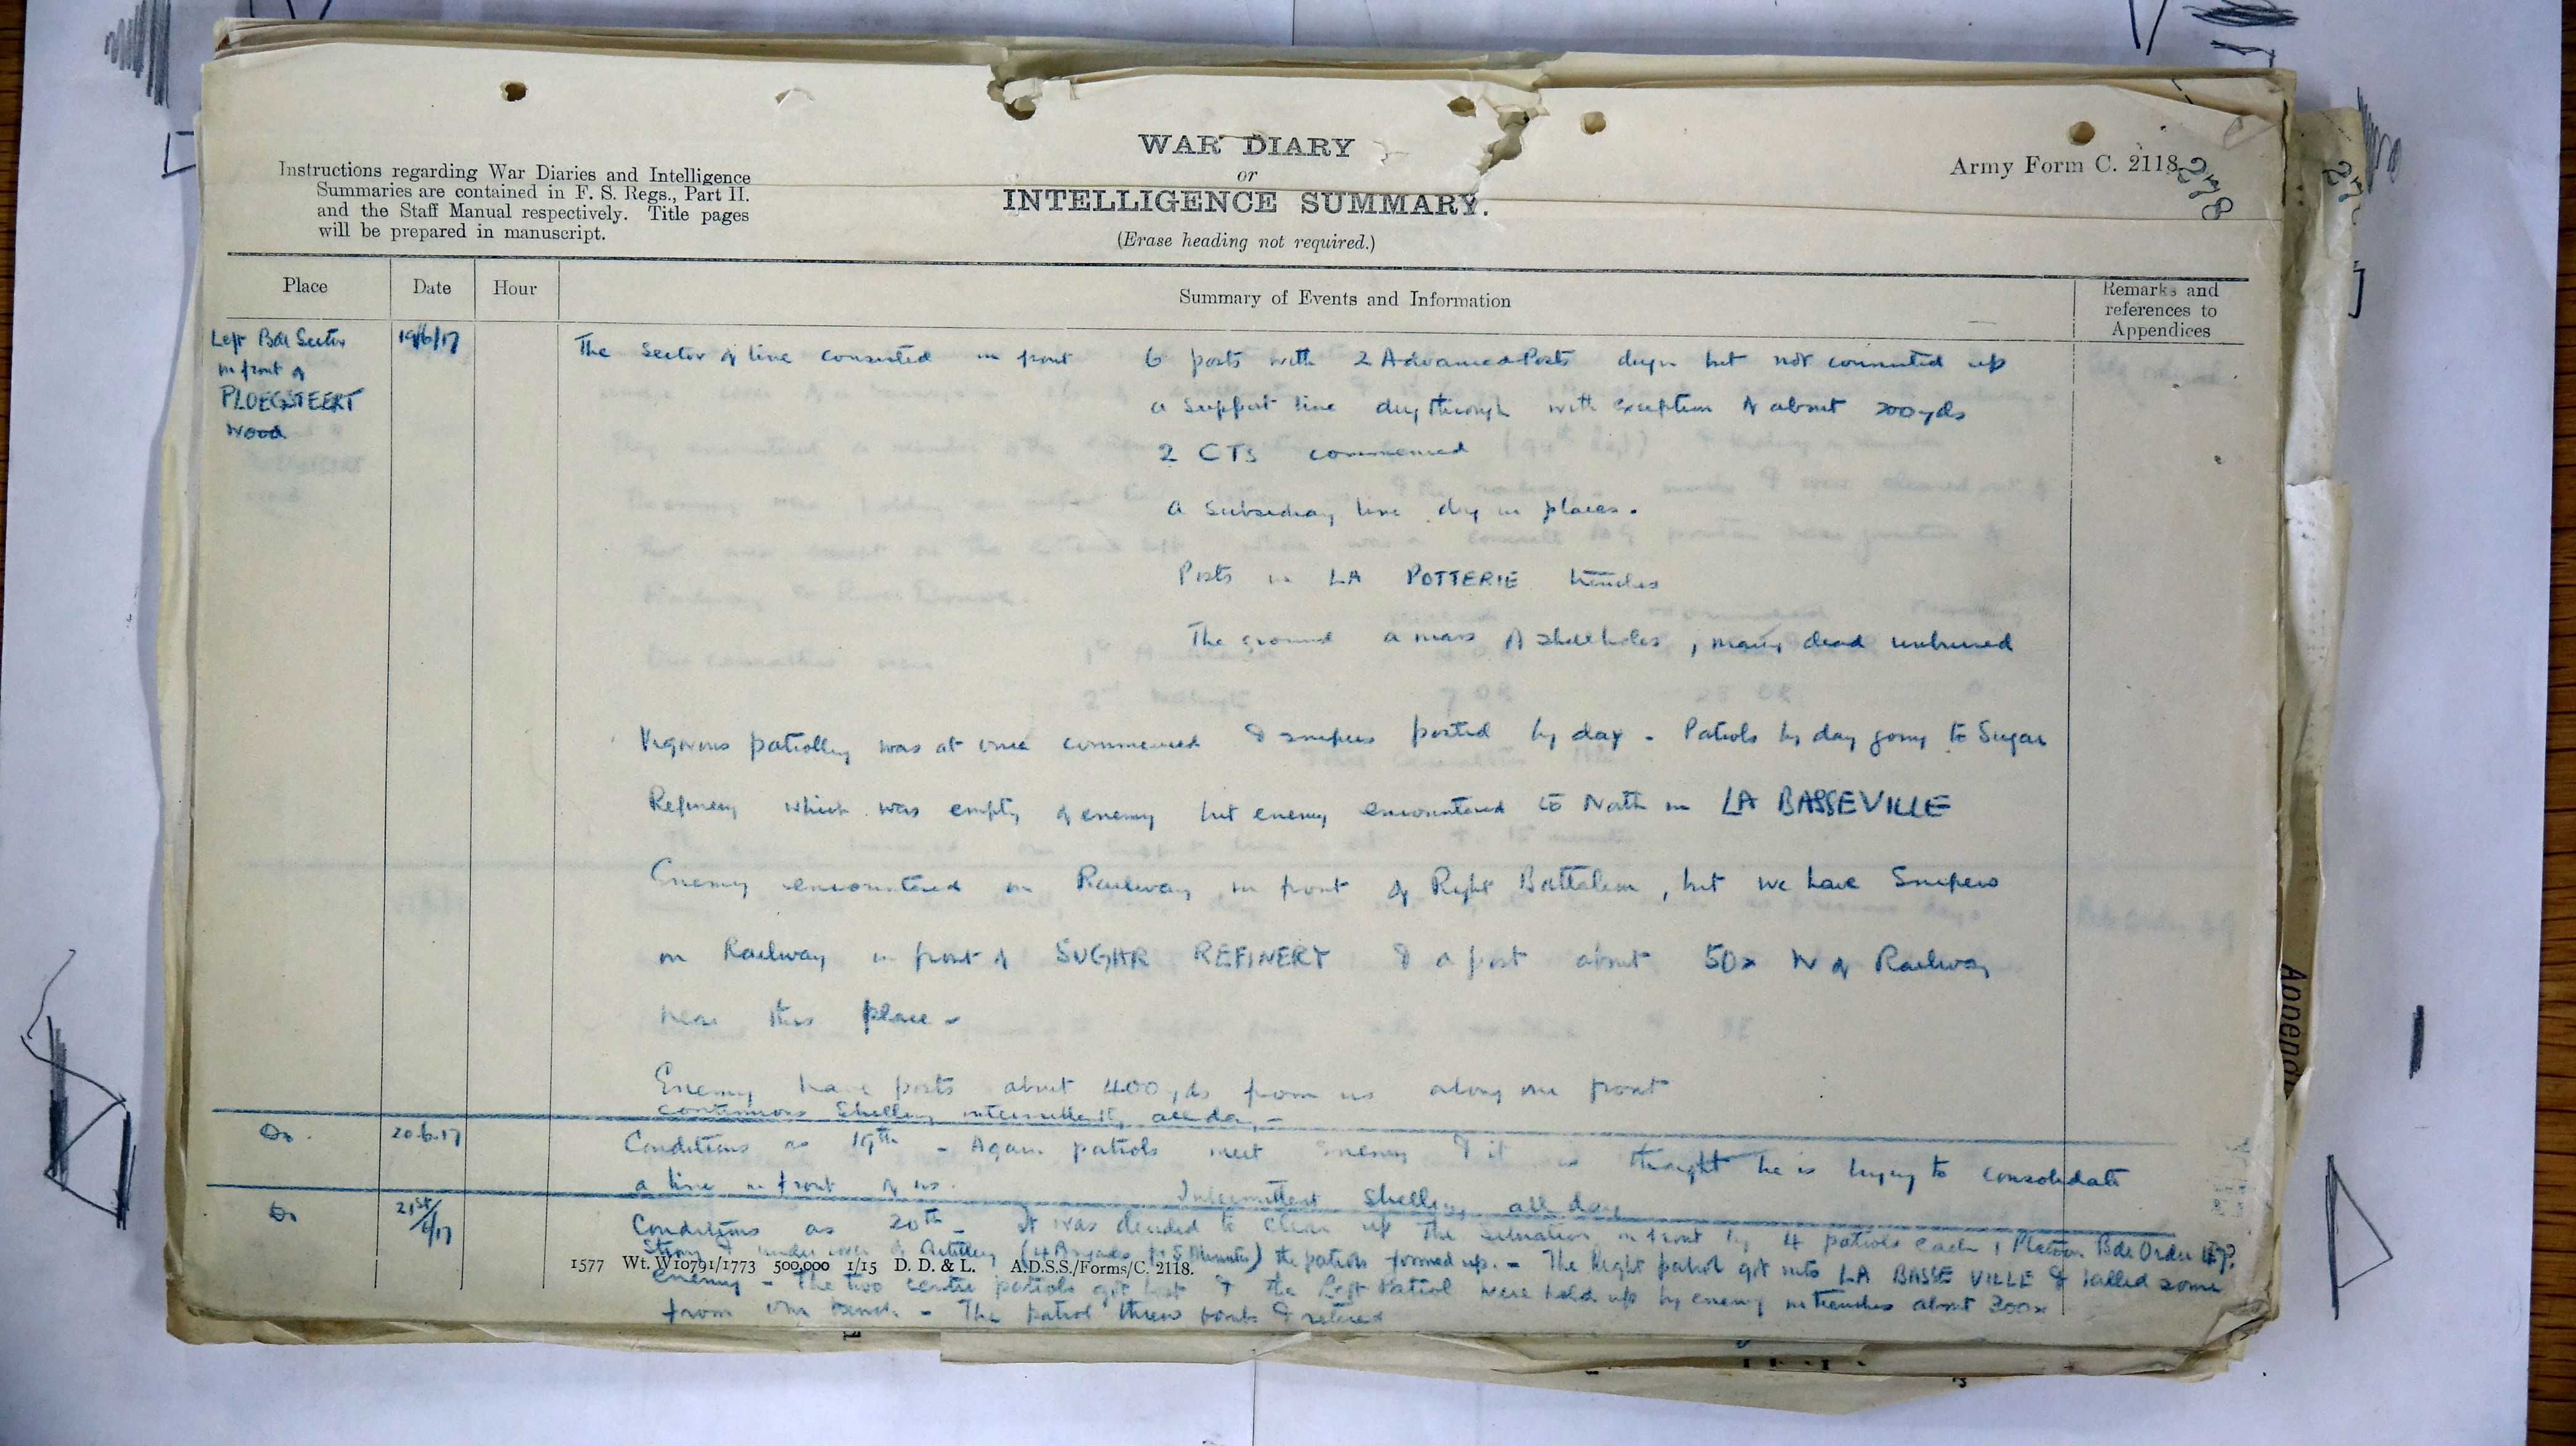 WAR DIARY
or
INTELLIGENCE SUMMARY.
(Erase heading not required.)
Instructions regarding War Diaries and Intelligence
Summaries are contained in F. S. Regs., Part II.
and the Staff Manual respectively. Title pages
will be prepared in manuscript.
Army Form C. 2118
Place
Date
Hour
Summary of Events and Information
Remarks and
references to
Appendices
Left Bde Sector
in front of
PLOEGSTEERT
Wood
19/6/17
The Sector of line consisted in front 6 posts with 2 Advanced Posts dug in but not connected up
a Support line dug through with exception of about 200 yds
2 CTs commenced
a Subsidiary line dug in places.
Posts in LA POTTERIE trenches
The ground a mass of shellholes, many dead unburied
Vigorous patrolling was at once commenced & snipers posted by day - Patrols by day going to Sugar
Refinery which was empty of enemy but enemy encountered to North in LA BASSEVILLE
Enemy encountered on Railway in front of Right Battalion, but we have Snipers
on Railway in front of SUGAR REFINERY & a post about 50x N of Railway
near this place -
Enemy have posts about 400 yds from us along our front
continuous Shelling intermittently all day -
Do.
20.6.17
Conditions as 19th - Again patrols meet Enemy & it is thought he is trying to consolidate
a line in front of us. Intermittent Shelling all day
Do
21st/6/17
Conditions as 20th - it was decided to clear up the situation in front by 4 patrols each 1 Platoon Bde Order
Strong & under cover of Artillery the patrols formed up. - The Right patrol got into LA BASSE VILLE & killed some
1577 Wt. W10791/1773 500,000 1/15 D. D. & L. A.D.S.S./Forms/C. 2118.
enemy - The two centre patrols got lost & the Left Patrol were held up by enemy in trenches about 300x
from our trench - The patrol threw bombs & retired
Appendi